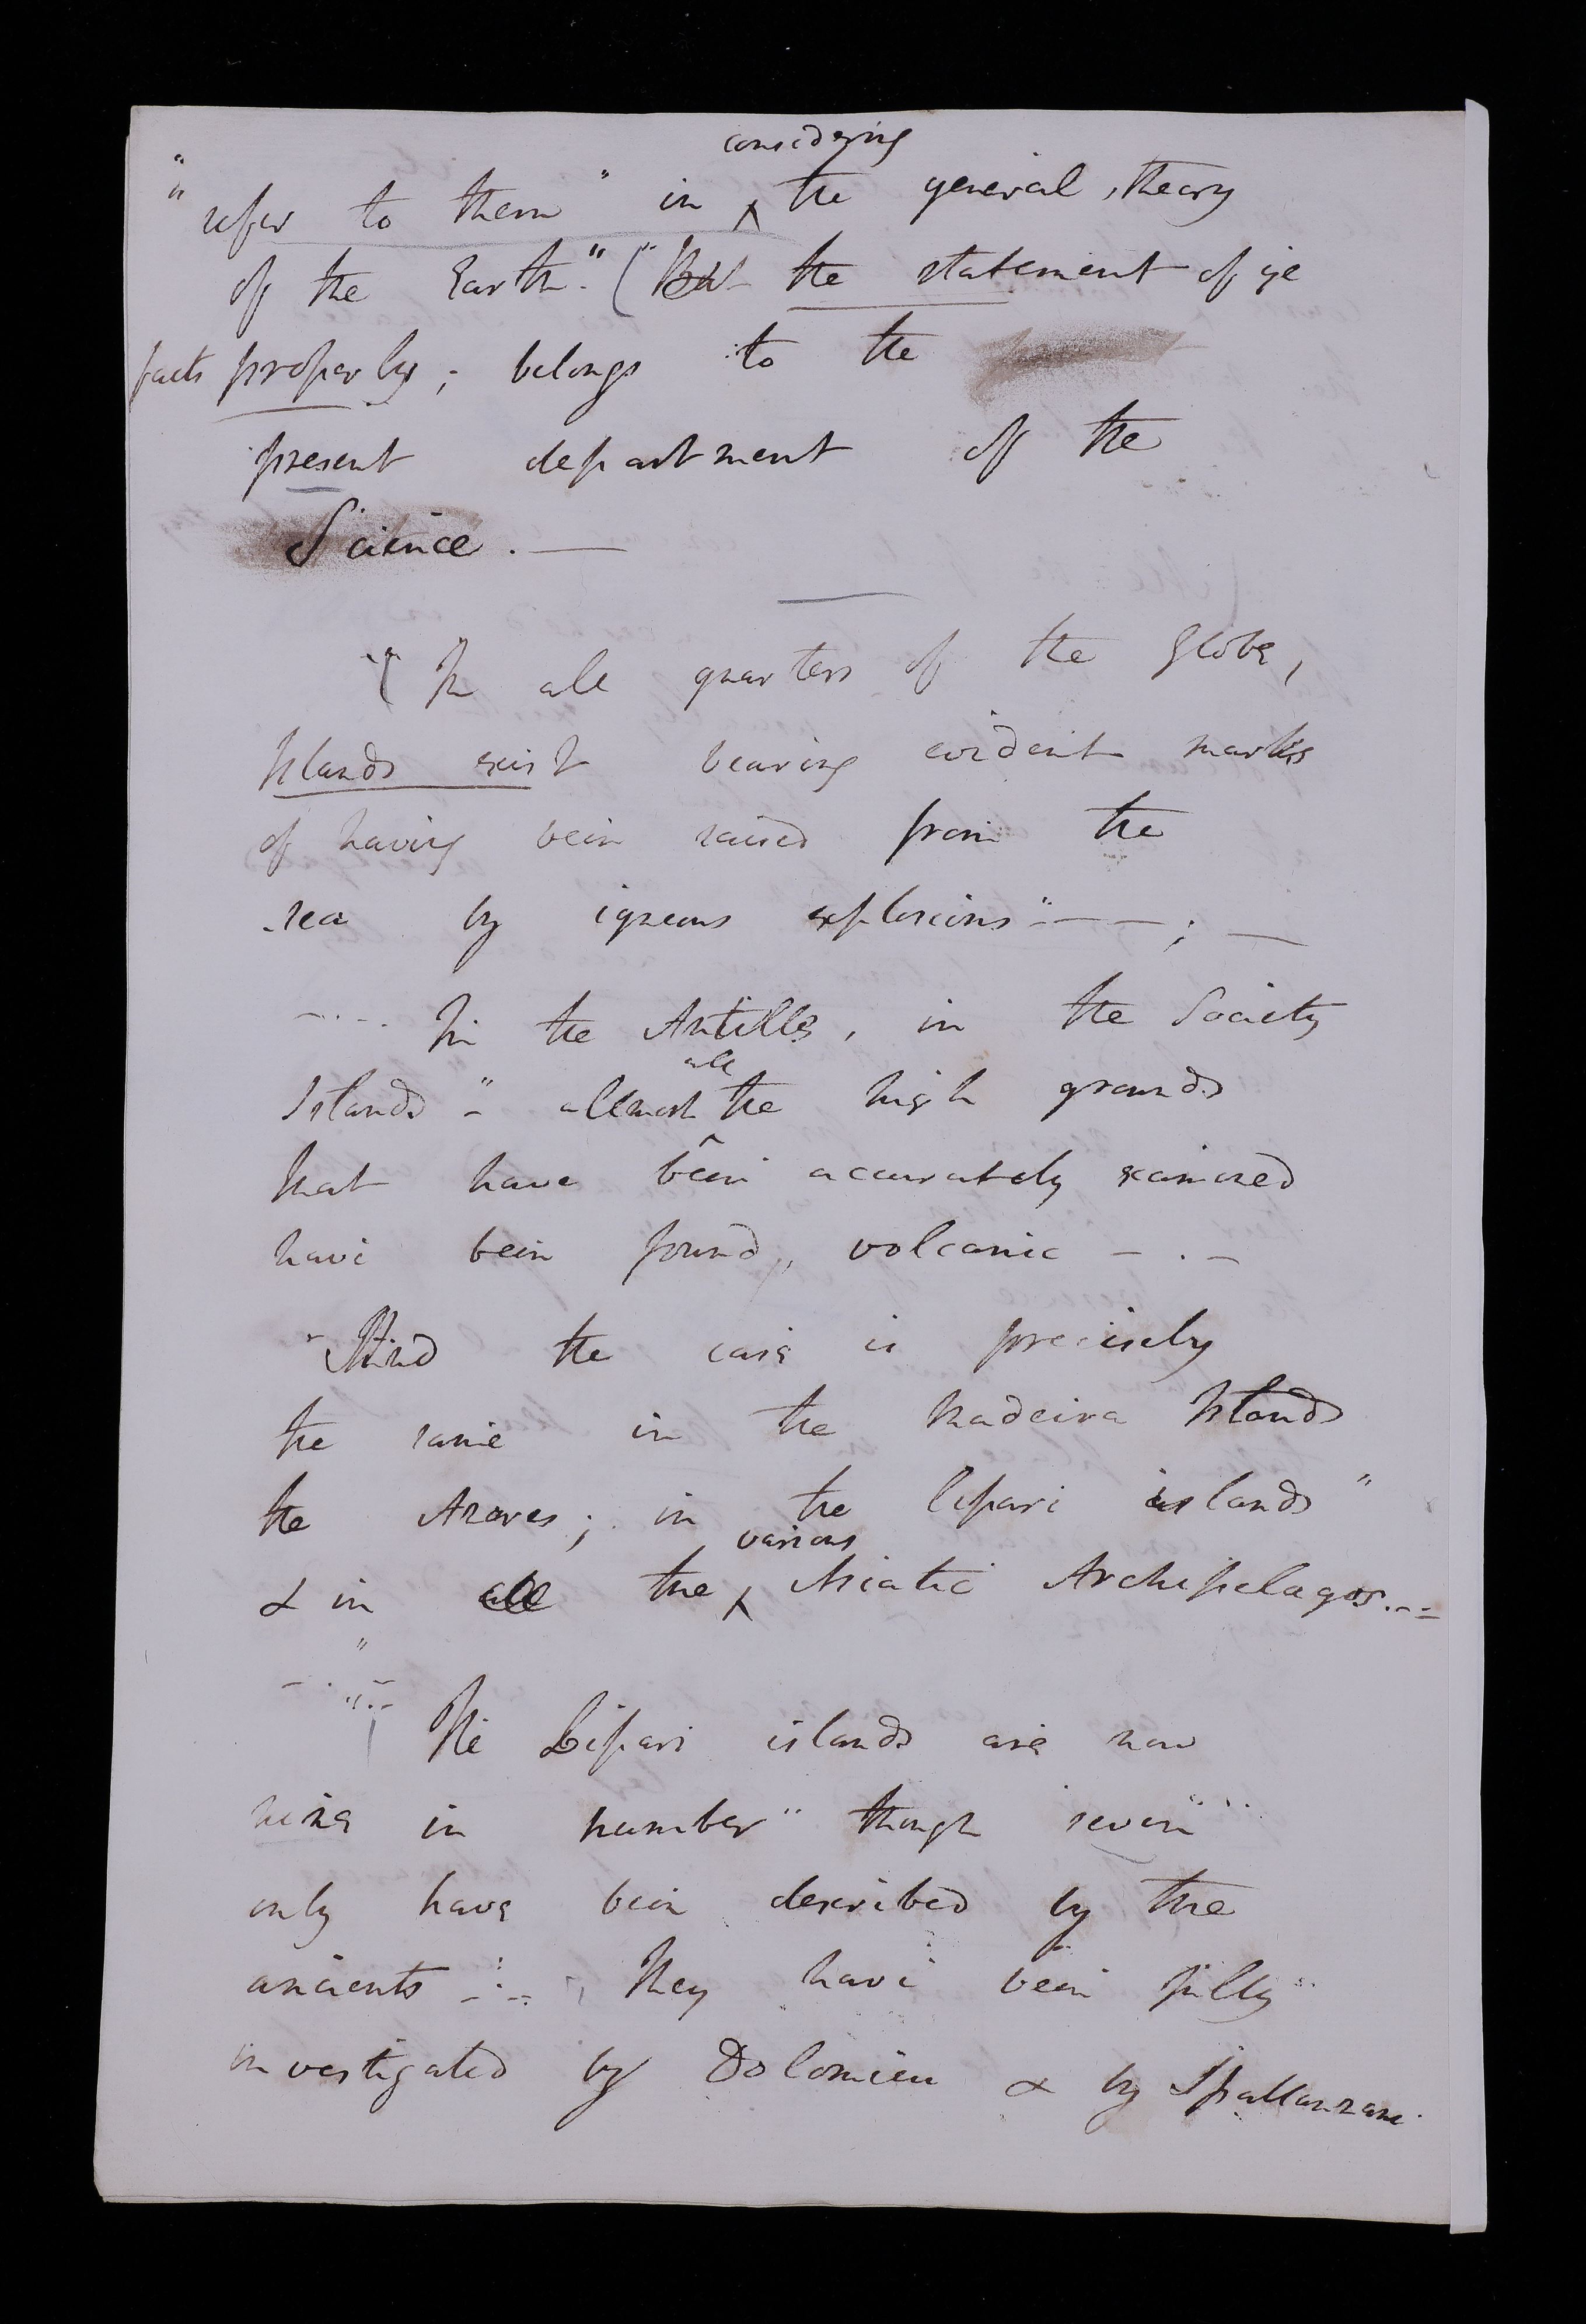 considering
"refer to them" in the general theory
of the Earth." ("But the statement of ye
facts properly; belongs to the
present department of the
Science. —
"In all quarters of the Globe,
Islands exist bearing evident marks
of having been raised from the
sea by igneous explosions" — — ; —
— · - · In the Antilles, in the Society
all
Islands " - allmost the high grounds
that have been accurately examined
have been found, volcanic — . —
"And the case is precisely
the same in the Madeira Islands
the Azores; in the lipari islands"
various
& in all the Asiatic Archipelagos. - -
The Lipari islands are now
nine in number" though seven
only have been described by the
ancients - : - They have been fully
investigated by Dolomieu & by Spallanzani.